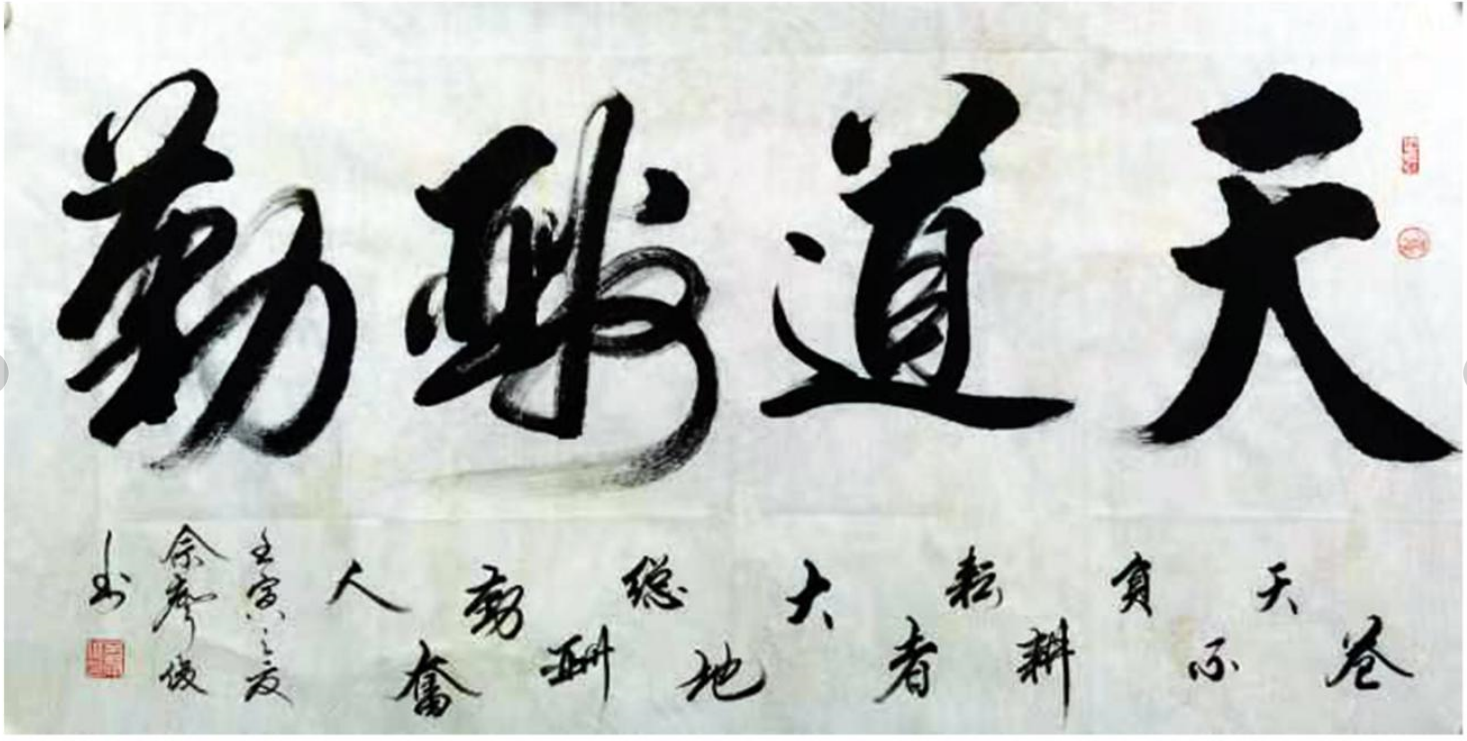 天道酬勤
苍天不負耕耘者大地総酬勤奮人
壬寅之夏
佘廖俊
书